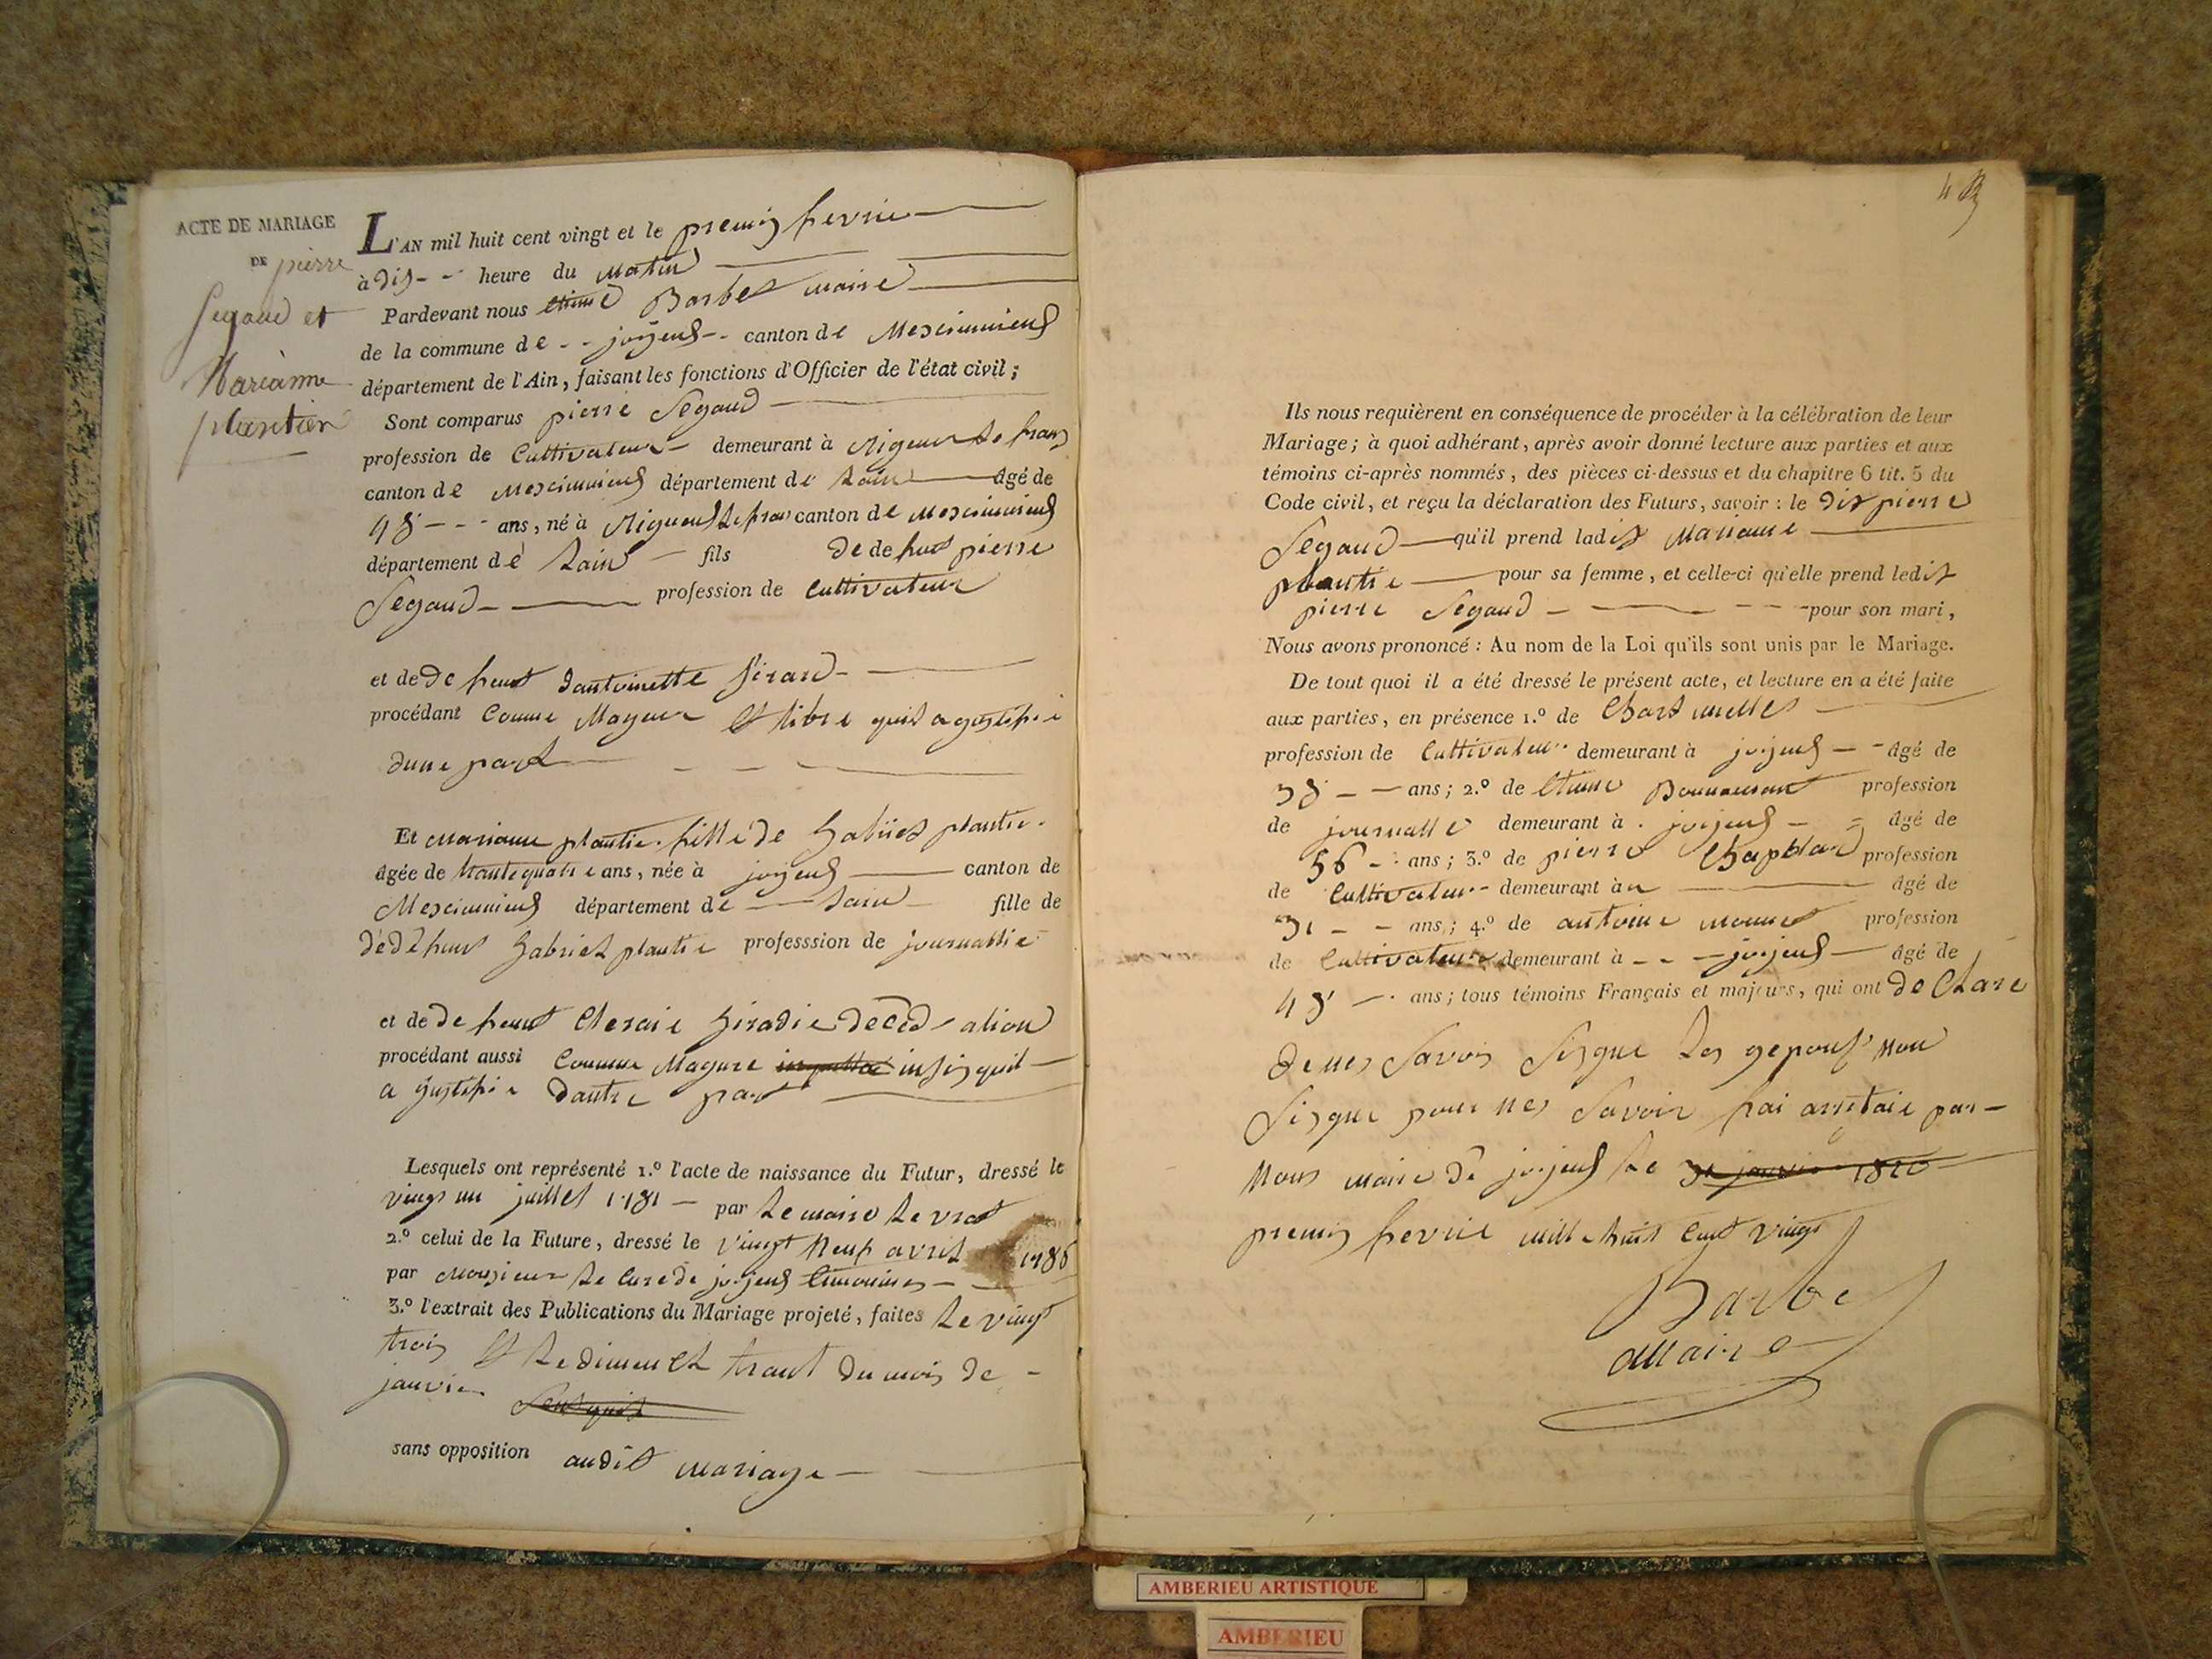 ACTE DE MARIAGE
DE pierre
Segaud et
Marianne
plantier
L'AN mil huit cent vingt et le premis fevrie
à dis heure du matin
Pardevant nous etiene Barbet maire
de la commune de joyeus canton de Meximieus
département de l'Ain, faisant les fonctions d'Officier de l'état civil;
Sont comparus pierre Segaud
profession de Cultivateur demeurant à Rigneus le franc
canton de Meximieus département de lain âgé de
ans, né à Rigneus le franc canton de Meximieus
département de lain fils de defunt pierre
Segaud profession de Cultivateur
et de defeunt dantoinette
procédant Comme Mageur et libre quil a gustifie
dune part
Et Marianne plantie fille de Gabriel plantie
âgée de trante quatre ans, née à joyeus canton de
Meximieus département de lain fille de
dedefunt Gabriel plantie professsion de journallie
et de defeunt
procédant aussi Comme Magure insis quil
a gustifie dautre part
Lesquels ont représenté 1.º l'acte de naissance du Futur, dressé le
vingt un juillet 1781 par le maire
2.º celui de la Future, dressé le vingt neuf avril 1786
par Monsieur le Curé de joyeus
3.º l'extrait des Publications du Mariage projeté, faites le vingt
trois et le dimench trant du mois de
janvier
sans opposition audit mariage
Ils nous requièrent en conséquence de procéder à la célébration de leur
Mariage; à quoi adhérant, après avoir donné lecture aux parties et aux
témoins ci-après nommés, des pièces ci-dessus et du chapitre 6 tit. 5 du
Code civil, et reçu la déclaration des Futurs, savoir: le dit pierre
Segaud qu'il prend ladit Marianne
plantie pour sa femme, et celle-ci qu'elle prend ledit
pierre Segaud pour son mari,
Nous avons prononcé: Au nom de la Loi qu'ils sont unis par le Mariage.
De tout quoi il a été dressé le présent acte, et lecture en a été faite
aux parties, en présence 1.º de
profession de Cultivateur demeurant à joyeus âgé de
38 ans; 2.º de Etiene profession
de journallie demeurant à joyeus âgé de
56 ans; 3.º de pierre profession
de Cultivateur demeurant à âgé de
31 ans; 4.º de antoine profession
de Cultivateur demeurant à joyeus âgé de
48 ans; tous témoins Français et majeurs, qui ont de Clare
de nes Savois Signe les Non
Signe pour nes Savoir fai par
Nous maire de joyeus le 31 janvier 1820
premis fevrie mill huit Cent vingt
Barbet
Maire
AMBERIEU ARTISTIQUE
AMBERIEU